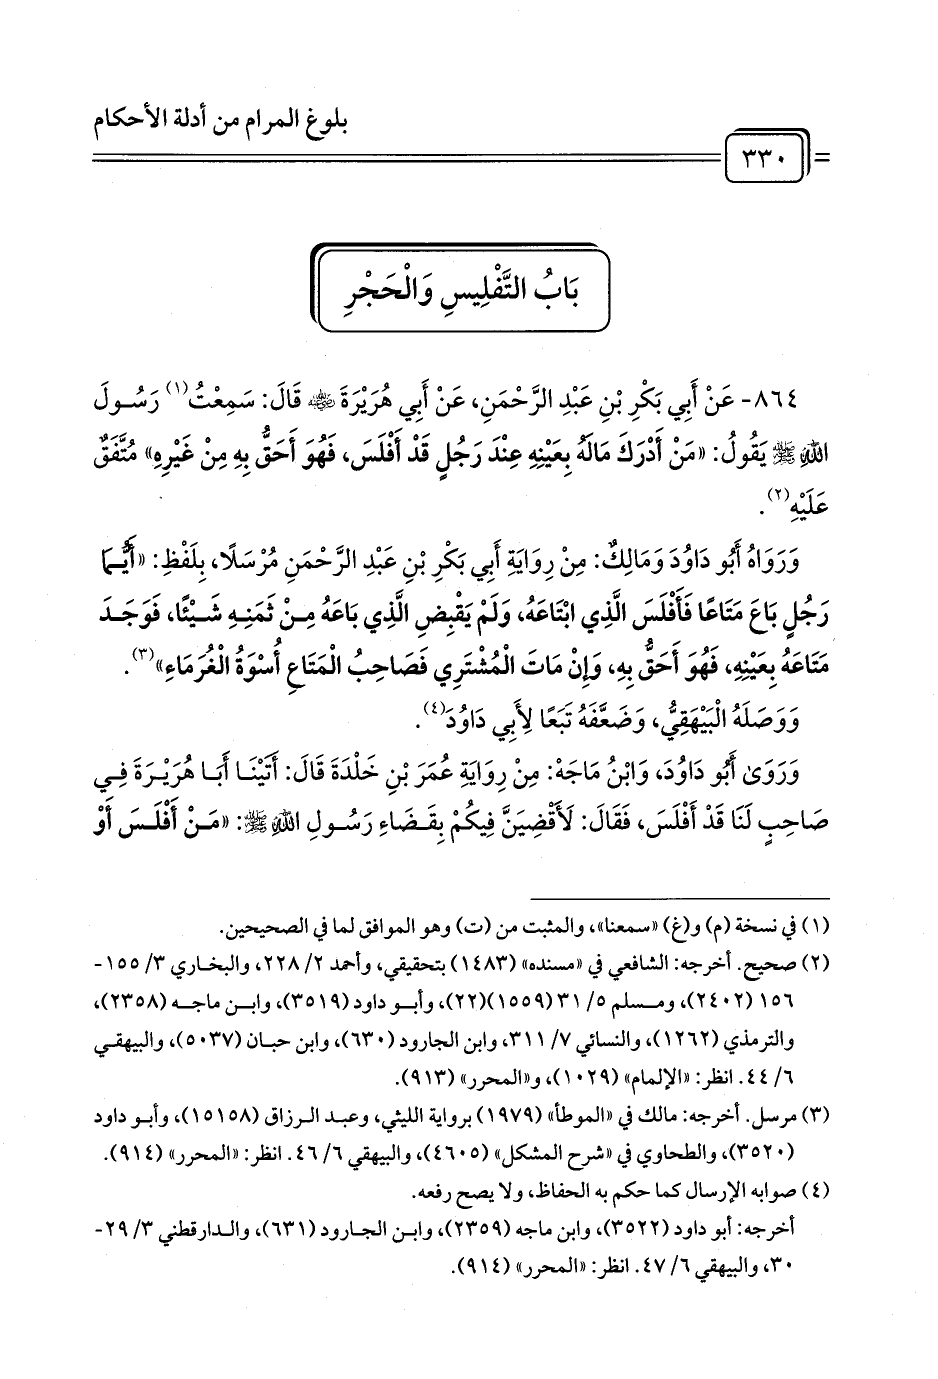 بلوغ المرام من أدلة الأحكام
٣٣٠
بَابُ التَّفْلِيسِ وَالْحَجْرِ
٨٦٤- عَنْ أَبِي بَكْرِ بْنِ عَبْدِ الرَّحْمَنِ، عَنْ أَبِي هُرَيْرَةَ ﵁ قَالَ: سَمِعْتُ(١) رَسُولَ
اللهِ ﷺ يَقُولُ: «مَنْ أَدْرَكَ مَالَهُ بِعَيْنِهِ عِنْدَ رَجُلٍ قَدْ أَفْلَسَ، فَهُوَ أَحَقُّ بِهِ مِنْ غَيْرِهِ» مُتَّفَقٌ
عَلَيْهِ(٢).
وَرَوَاهُ أَبُو دَاوُدَ وَمَالِكٌ: مِنْ رِوَايَةِ أَبِي بَكْرِ بْنِ عَبْدِ الرَّحْمَنِ مُرْسَلًا، بِلَفْظِ: «أَيُّمَا
رَجُلٍ بَاعَ مَتَاعًا فَأَفْلَسَ الَّذِي ابْتَاعَهُ، وَلَمْ يَقْبِضِ الَّذِي بَاعَهُ مِنْ ثَمَنِهِ شَيْئًا، فَوَجَدَ
مَتَاعَهُ بِعَيْنِهِ، فَهُوَ أَحَقُّ بِهِ، وَإِنْ مَاتَ الْمُشْتَرِي فَصَاحِبُ الْمَتَاعِ أُسْوَةُ الْغُرَمَاءِ»(٣).
وَوَصَلَهُ الْبَيْهَقِيُّ، وَضَعَّفَهُ تَبَعًا لِأَبِي دَاوُدَ(٤).
وَرَوَى أَبُو دَاوُدَ، وَابْنُ مَاجَهْ: مِنْ رِوَايَةِ عُمَرَ بْنِ خَلْدَةَ قَالَ: أَتَيْنَا أَبَا هُرَيْرَةَ فِي
صَاحِبٍ لَنَا قَدْ أَفْلَسَ، فَقَالَ: لَأَقْضِيَنَّ فِيكُمْ بِقَضَاءِ رَسُولِ اللهِ ﷺ: «مَنْ أَفْلَسَ أَوْ
(١) في نسخة (م) و(غ) «سمعنا»، والمثبت من (ت) وهو الموافق لما في الصحيحين.
(٢) صحيح. أخرجه: الشافعي في «مسنده» (١٤٨٣) بتحقيقي، وأحمد ٢/ ٢٢٨، والبخاري ٣/ ١٥٥-
١٥٦ (٢٤٠٢)، ومسلم ٥/ ٣١ (١٥٥٩)(٢٢)، وأبو داود (٣٥١٩)، وابن ماجه (٢٣٥٨)،
والترمذي (١٢٦٢)، والنسائي ٧/ ٣١١، وابن الجارود (٦٣٠)، وابن حبان (٥٠٣٧)، والبيهقي
٦/ ٤٤. انظر: «الإلمام» (١٠٢٩)، و«المحرر» (٩١٣).
(٣) مرسل. أخرجه: مالك في «الموطأ» (١٩٧٩) برواية الليثي، وعبد الرزاق (١٥١٥٨)، وأبو داود
(٣٥٢٠)، والطحاوي في «شرح المشكل» (٤٦٠٥)، والبيهقي ٦/ ٤٦. انظر: «المحرر» (٩١٤).
(٤) صوابه الإرسال كما حكم به الحفاظ، ولا يصح رفعه.
أخرجه: أبو داود (٣٥٢٢)، وابن ماجه (٢٣٥٩)، وابن الجارود (٦٣١)، والدارقطني ٣/ ٢٩-
٣٠، والبيهقي ٦/ ٤٧. انظر: «المحرر» (٩١٤).